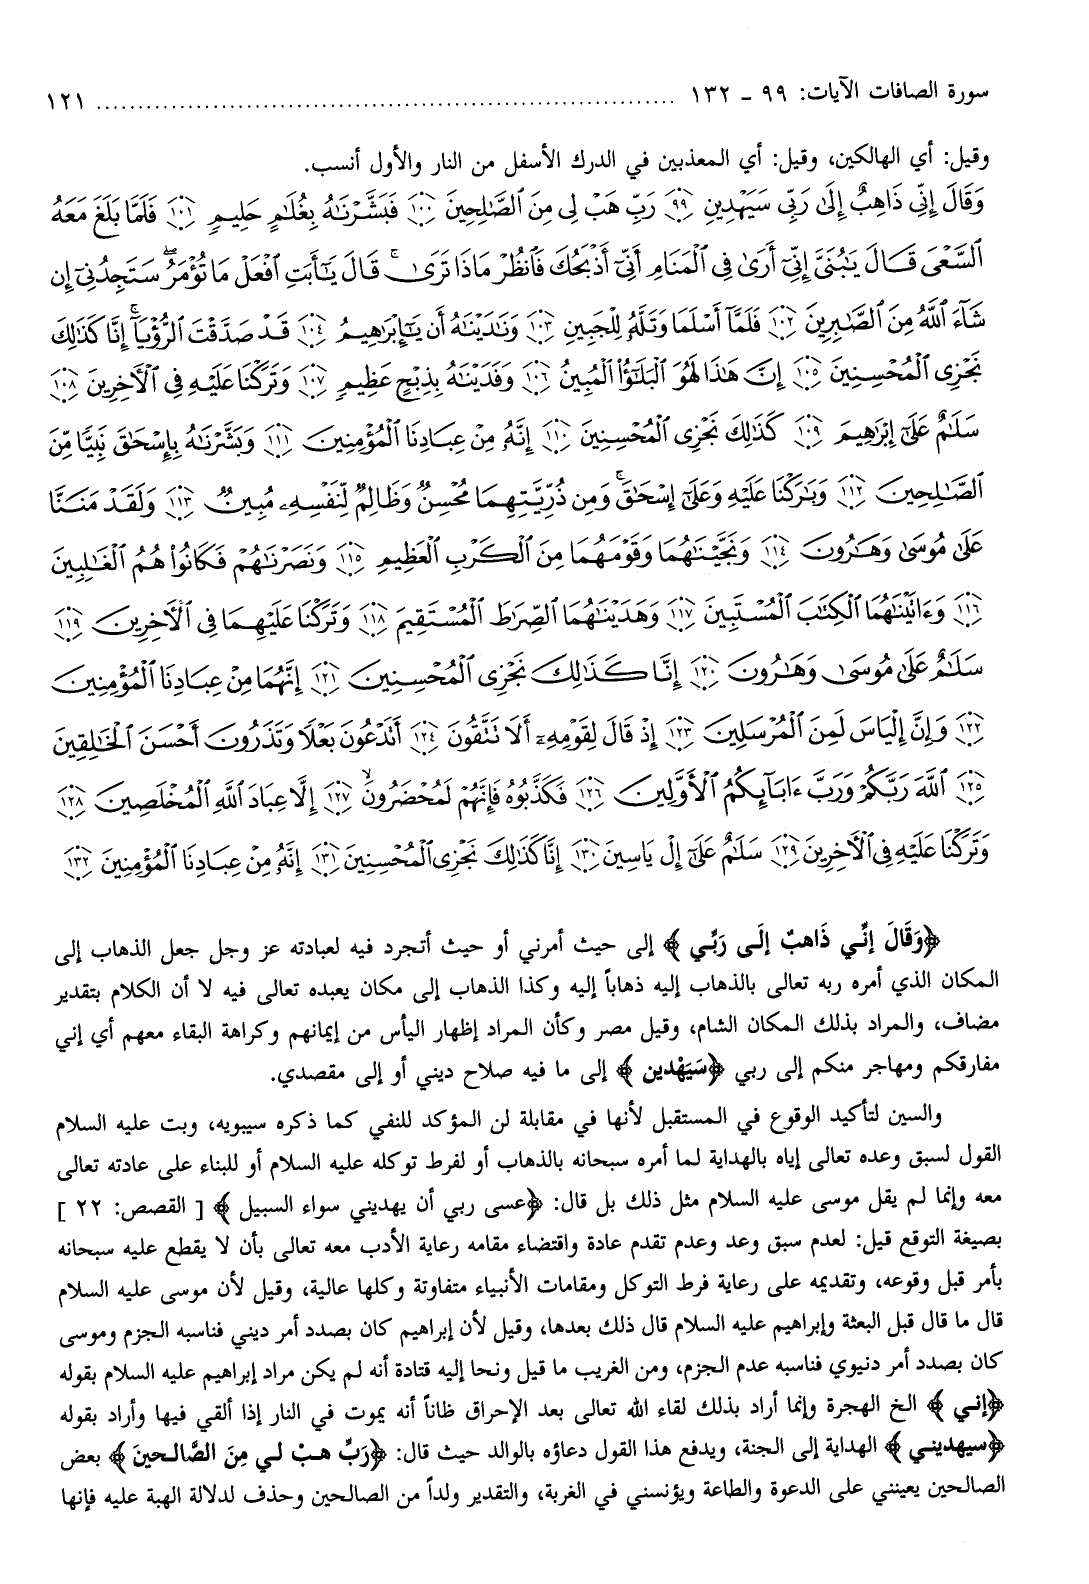 سورة الصافات الآيات: ٩٩ ـ ١٣٢ ........................................................................ ١٢١
وقيل: أي الهالكين، وقيل: أي المعذبين في الدرك الأسفل من النار والأول أنسب.
وَقَالَ إِنِّي ذَاهِبٌ إِلَىٰ رَبِّي سَيَهْدِينِ ٩٩ رَبِّ هَبْ لِي مِنَ ٱلصَّٰلِحِينَ ١٠٠ فَبَشَّرْنَٰهُ بِغُلَٰمٍ حَلِيمٍ ١٠١ فَلَمَّا بَلَغَ مَعَهُ
ٱلسَّعْىَ قَالَ يَٰبُنَىَّ إِنِّىٓ أَرَىٰ فِى ٱلْمَنَامِ أَنِّىٓ أَذْبَحُكَ فَٱنظُرْ مَاذَا تَرَىٰ ۚ قَالَ يَٰٓأَبَتِ ٱفْعَلْ مَا تُؤْمَرُ ۖ سَتَجِدُنِىٓ إِن
شَآءَ ٱللَّهُ مِنَ ٱلصَّٰبِرِينَ ١٠٢ فَلَمَّآ أَسْلَمَا وَتَلَّهُۥ لِلْجَبِينِ ١٠٣ وَنَٰدَيْنَٰهُ أَن يَٰٓإِبْرَٰهِيمُ ١٠٤ قَدْ صَدَّقْتَ ٱلرُّءْيَآ ۚ إِنَّا كَذَٰلِكَ
نَجْزِى ٱلْمُحْسِنِينَ ١٠٥ إِنَّ هَٰذَا لَهُوَ ٱلْبَلَٰٓؤُا۟ ٱلْمُبِينُ ١٠٦ وَفَدَيْنَٰهُ بِذِبْحٍ عَظِيمٍ ١٠٧ وَتَرَكْنَا عَلَيْهِ فِى ٱلْءَاخِرِينَ ١٠٨
سَلَٰمٌ عَلَىٰٓ إِبْرَٰهِيمَ ١٠٩ كَذَٰلِكَ نَجْزِى ٱلْمُحْسِنِينَ ١١٠ إِنَّهُۥ مِنْ عِبَادِنَا ٱلْمُؤْمِنِينَ ١١١ وَبَشَّرْنَٰهُ بِإِسْحَٰقَ نَبِيًّا مِّنَ
ٱلصَّٰلِحِينَ ١١٢ وَبَٰرَكْنَا عَلَيْهِ وَعَلَىٰٓ إِسْحَٰقَ ۚ وَمِن ذُرِّيَّتِهِمَا مُحْسِنٌ وَظَالِمٌ لِّنَفْسِهِۦ مُبِينٌ ١١٣ وَلَقَدْ مَنَنَّا
عَلَىٰ مُوسَىٰ وَهَٰرُونَ ١١٤ وَنَجَّيْنَٰهُمَا وَقَوْمَهُمَا مِنَ ٱلْكَرْبِ ٱلْعَظِيمِ ١١٥ وَنَصَرْنَٰهُمْ فَكَانُوا۟ هُمُ ٱلْغَٰلِبِينَ
١١٦ وَءَاتَيْنَٰهُمَا ٱلْكِتَٰبَ ٱلْمُسْتَبِينَ ١١٧ وَهَدَيْنَٰهُمَا ٱلصِّرَٰطَ ٱلْمُسْتَقِيمَ ١١٨ وَتَرَكْنَا عَلَيْهِمَا فِى ٱلْءَاخِرِينَ ١١٩
سَلَٰمٌ عَلَىٰ مُوسَىٰ وَهَٰرُونَ ١٢٠ إِنَّا كَذَٰلِكَ نَجْزِى ٱلْمُحْسِنِينَ ١٢١ إِنَّهُمَا مِنْ عِبَادِنَا ٱلْمُؤْمِنِينَ
١٢٢ وَإِنَّ إِلْيَاسَ لَمِنَ ٱلْمُرْسَلِينَ ١٢٣ إِذْ قَالَ لِقَوْمِهِۦٓ أَلَا تَتَّقُونَ ١٢٤ أَتَدْعُونَ بَعْلًا وَتَذَرُونَ أَحْسَنَ ٱلْخَٰلِقِينَ
١٢٥ ٱللَّهَ رَبَّكُمْ وَرَبَّ ءَابَآئِكُمُ ٱلْأَوَّلِينَ ١٢٦ فَكَذَّبُوهُ فَإِنَّهُمْ لَمُحْضَرُونَ ۙ ١٢٧ إِلَّا عِبَادَ ٱللَّهِ ٱلْمُخْلَصِينَ ١٢٨
وَتَرَكْنَا عَلَيْهِ فِى ٱلْءَاخِرِينَ ١٢٩ سَلَٰمٌ عَلَىٰٓ إِلْ يَاسِينَ ١٣٠ إِنَّا كَذَٰلِكَ نَجْزِى ٱلْمُحْسِنِينَ ١٣١ إِنَّهُۥ مِنْ عِبَادِنَا ٱلْمُؤْمِنِينَ ١٣٢
﴿وَقَالَ إِنِّي ذَاهِبٌ إِلَى رَبِّي﴾ إلى حيث أمرني أو حيث أتجرد فيه لعبادته عز وجل جعل الذهاب إلى
المكان الذي أمره ربه تعالى بالذهاب إليه ذهاباً إليه وكذا الذهاب إلى مكان يعبده تعالى فيه لا أن الكلام بتقدير
مضاف، والمراد بذلك المكان الشام، وقيل مصر وكأن المراد إظهار اليأس من إيمانهم وكراهة البقاء معهم أي إني
مفارقكم ومهاجر منكم إلى ربي ﴿سَيَهْدين﴾ إلى ما فيه صلاح ديني أو إلى مقصدي.
والسين لتأكيد الوقوع في المستقبل لأنها في مقابلة لن المؤكد للنفي كما ذكره سيبويه، وبت عليه السلام
القول لسبق وعده تعالى إياه بالهداية لما أمره سبحانه بالذهاب أو لفرط توكله عليه السلام أو للبناء على عادته تعالى
معه وإنما لم يقل موسى عليه السلام مثل ذلك بل قال: ﴿عسى ربي أن يهديني سواء السبيل﴾ [ القصص: ٢٢ ]
بصيغة التوقع قيل: لعدم سبق وعد وعدم تقدم عادة واقتضاء مقامه رعاية الأدب معه تعالى بأن لا يقطع عليه سبحانه
بأمر قبل وقوعه، وتقديمه على رعاية فرط التوكل ومقامات الأنبياء متفاوتة وكلها عالية، وقيل لأن موسى عليه السلام
قال ما قال قبل البعثة وإبراهيم عليه السلام قال ذلك بعدها، وقيل لأن إبراهيم كان بصدد أمر ديني فناسبه الجزم وموسى
كان بصدد أمر دنيوي فناسبه عدم الجزم، ومن الغريب ما قيل ونحا إليه قتادة أنه لم يكن مراد إبراهيم عليه السلام بقوله
﴿إني﴾ الخ الهجرة وإنما أراد بذلك لقاء الله تعالى بعد الإحراق ظاناً أنه يموت في النار إذا ألقي فيها وأراد بقوله
﴿سيهديني﴾ الهداية إلى الجنة، ويدفع هذا القول دعاؤه بالوالد حيث قال: ﴿رَبِّ هبْ لي مِنَ الصَّالحينَ﴾ بعض
الصالحين يعينني على الدعوة والطاعة ويؤنسني في الغربة، والتقدير ولداً من الصالحين وحذف لدلالة الهبة عليه فإنها